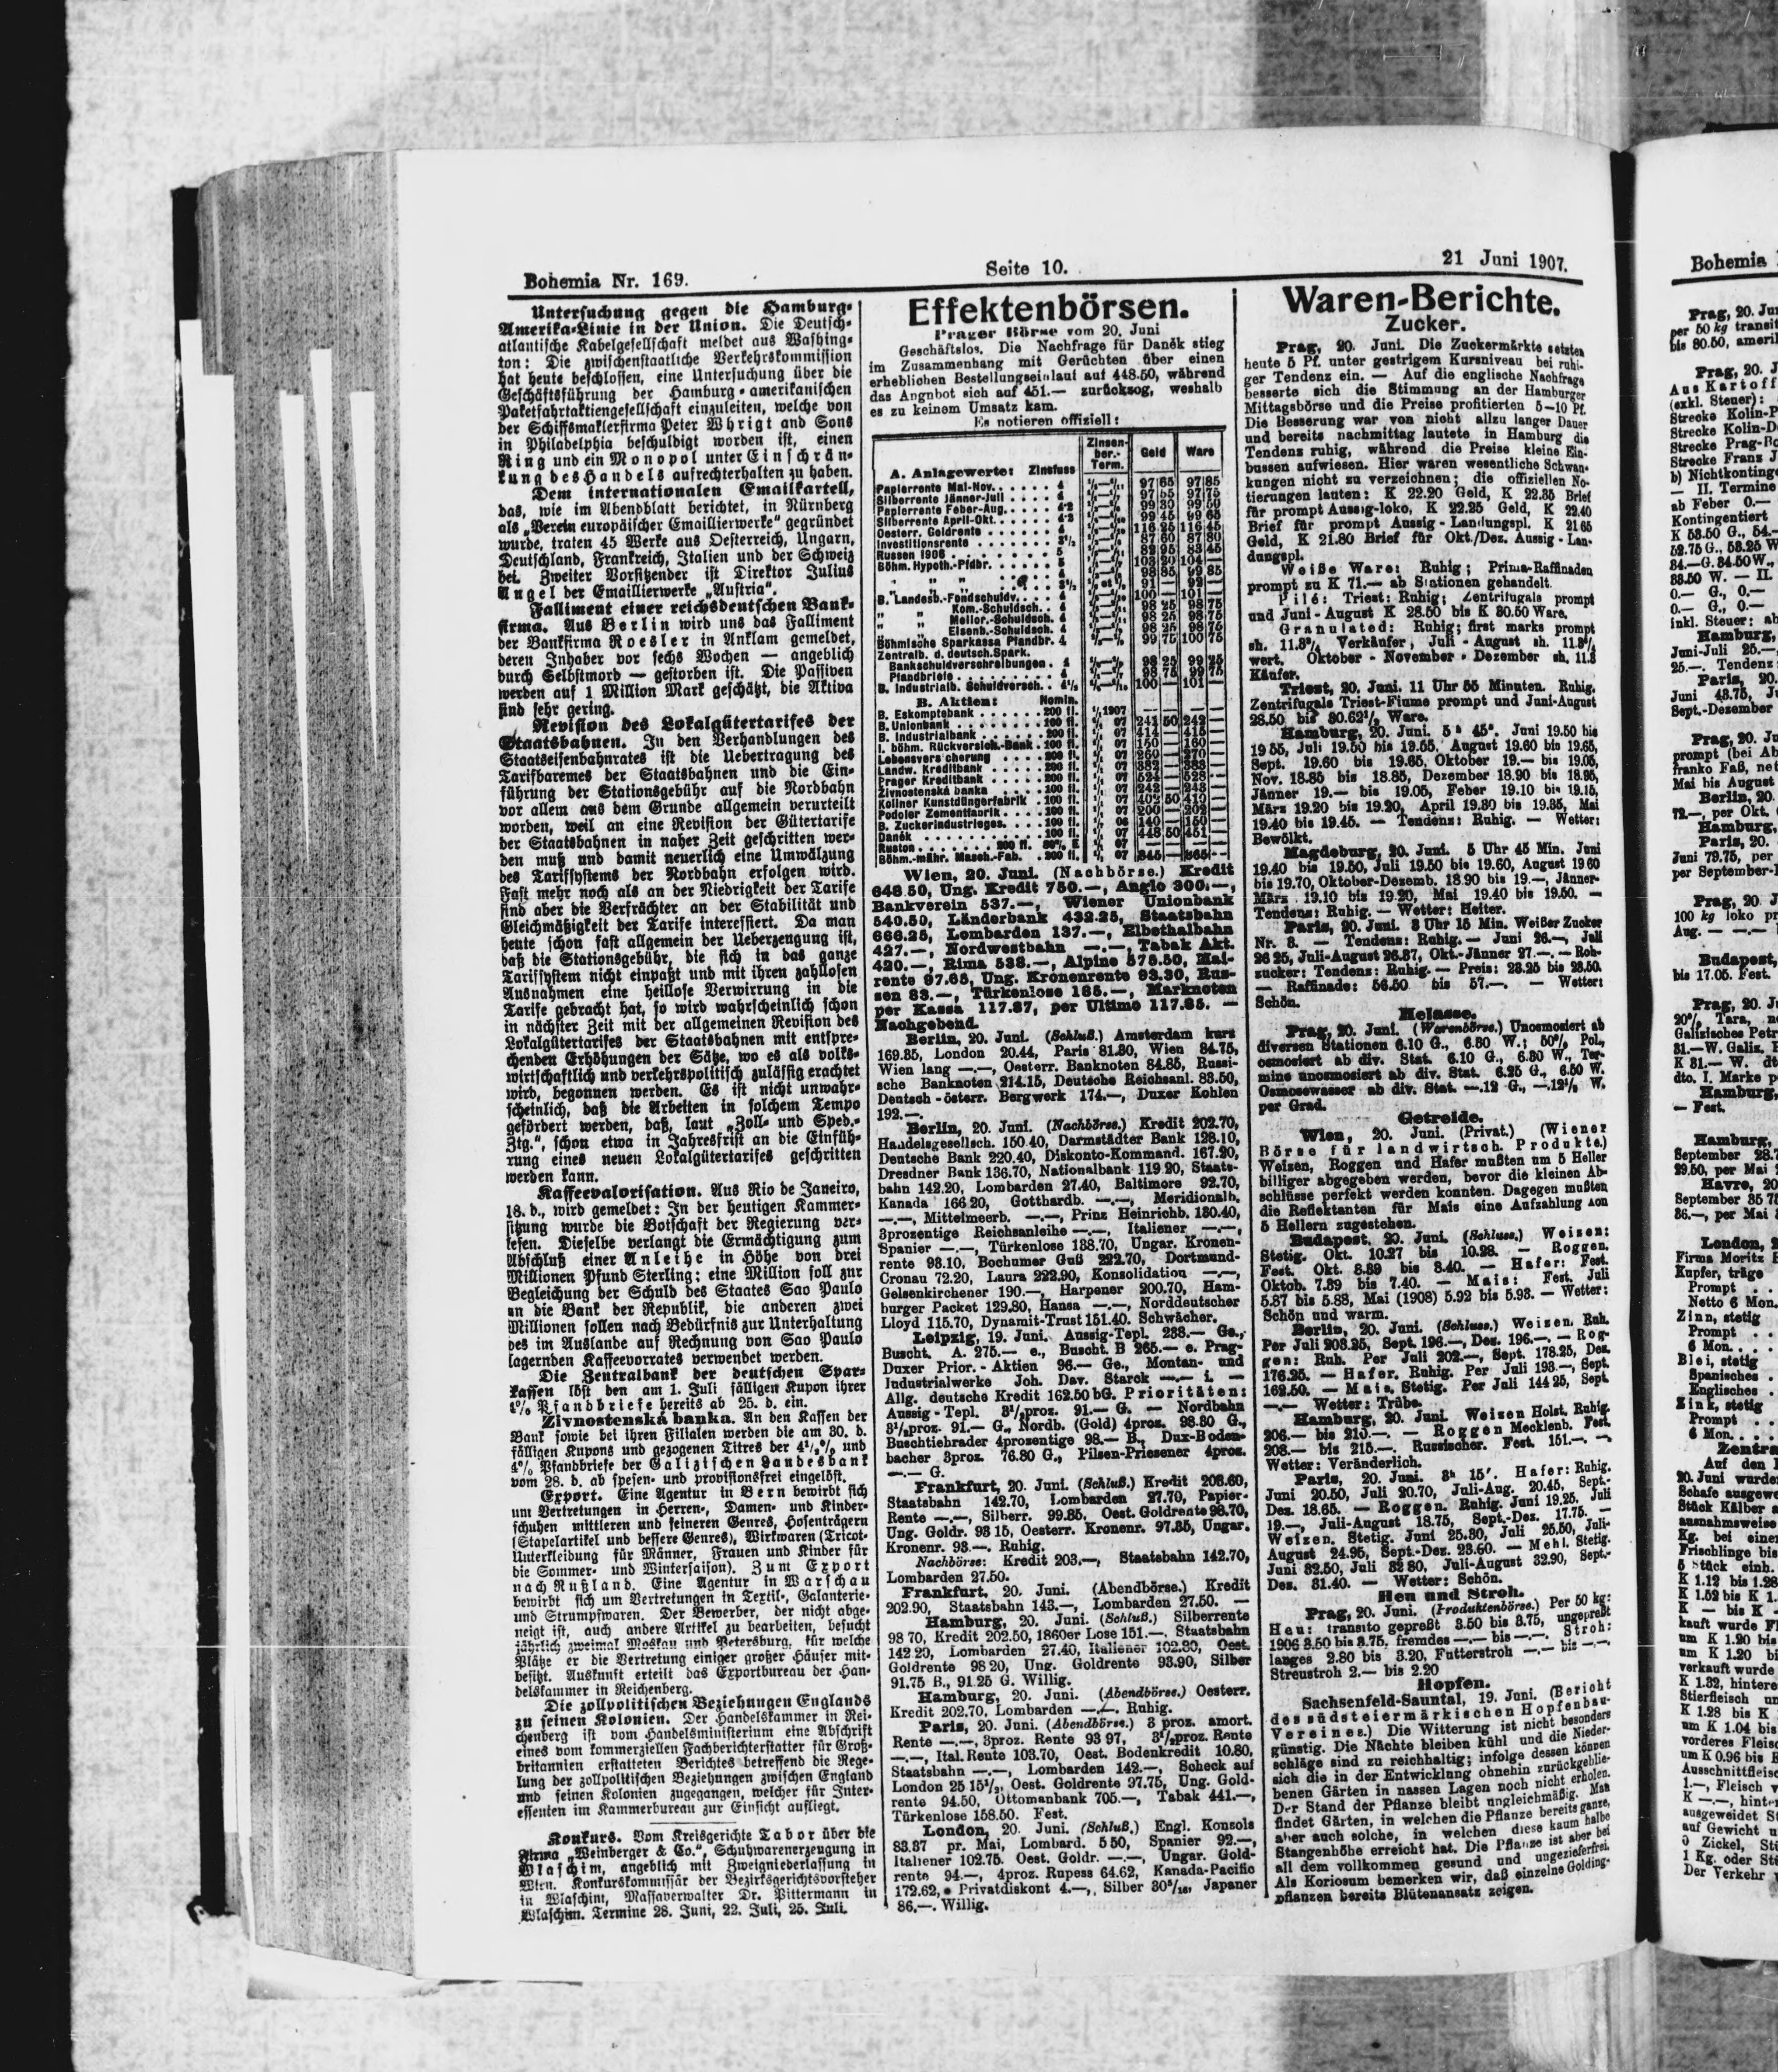 Bohemia Nr. 169.
Seite 10.
21 Juni 1907.
Untersuchung gegen die Hamburg-
Amerika-Linie in der Union. Die Deutsch-
atlantische Kabelgesellschaft meldet aus Washing-
ton: Die zwischenstaatliche Verkehrskommission
hat heute beschlossen, eine Untersuchung über die
Geschäftsführung der Hamburg-amerikanischen
Paketfahrtaktiengesellschaft einzuleiten, welche von
der Schiffsmaklerfirma Peter Whrigt and Sons
in Philadelphia beschuldigt worden ist, einen
Ring und ein Monopol unter Einschrän-
kung des Handels aufrechterhalten zu haben.
Dem internationalen Emailkartell,
das, wie im Abendblatt berichtet, in Nürnberg
als „Verein europäischer Emaillierwerke“ gegründet
wurde, traten 45 Werke aus Oesterreich, Ungarn,
Deutschland, Frankreich, Italien und der Schweiz
bei. Zweiter Vorsitzender ist Direktor Julius
Angel der Emaillierwerke „Austria“.
Falliment einer reichsdeutschen Bank-
firma. Aus Berlin wird uns das Falliment
der Bankfirma Roesler in Anklam gemeldet,
deren Inhaber vor sechs Wochen — angeblich
durch Selbstmord — gestorben ist. Die Passiven
werden auf 1 Million Mark geschätzt, die Aktiva
sind sehr gering.
Revision des Lokalgütertarifes der
Staatsbahnen. In den Verhandlungen des
Staatseisenbahnrates ist die Uebertragung des
Tarifbaremes der Staatsbahnen und die Ein-
führung der Stationsgebühr auf die Nordbahn
vor allem aus dem Grunde allgemein verurteilt
worden, weil an eine Revision der Gütertarife
der Staatsbahnen in naher Zeit geschritten wer-
den muß und damit neuerlich eine Umwälzung
des Tarifsystems der Nordbahn erfolgen wird.
Fast mehr noch als an der Niedrigkeit der Tarife
sind aber die Verfrächter an der Stabilität und
Gleichmäßigkeit der Tarife interessiert. Da man
heute schon fast allgemein der Ueberzeugung ist,
daß die Stationsgebühr, die sich in das ganze
Tarifsystem nicht einpaßt und mit ihren zahllosen
Ausnahmen eine heillose Verwirrung in die
Tarife gebracht hat, so wird wahrscheinlich schon
in nächster Zeit mit der allgemeinen Revision des
Lokalgütertarifes der Staatsbahnen mit entspre-
chenden Erhöhungen der Sätze, wo es als volks-
wirtschaftlich und verkehrspolitisch zulässig erachtet
wird, begonnen werden. Es ist nicht unwahr-
scheinlich, daß die Arbeiten in solchem Tempo
gefördert werden, daß, laut „Zoll- und Sped.-
Ztg.“, schon etwa in Jahresfrist an die Einfüh-
rung eines neuen Lokalgütertarifes geschritten
werden kann.
Kaffeevalorisation. Aus Rio de Janeiro,
18. d., wird gemeldet: In der heutigen Kammer-
sitzung wurde die Botschaft der Regierung ver-
lesen. Dieselbe verlangt die Ermächtigung zum
Abschluß einer Anleihe in Höhe von drei
Millionen Pfund Sterling; eine Million soll zur
Begleichung der Schuld des Staates Sao Paulo
an die Bank der Republik, die anderen zwei
Millionen sollen nach Bedürfnis zur Unterhaltung
des im Auslande auf Rechnung von Sao Paulo
lagernden Kaffeevorrates verwendet werden.
Die Zentralbank der deutschen Spar-
kassen löst den am 1. Juli fälligen Kupon ihrer
4% Pfandbriefe bereits ab 25. d. ein.
Zivnostenská banka. An den Kassen der
Bank sowie bei ihren Filialen werden die am 30. d.
fälligen Kupons und gezogenen Titres der 4½% und
4% Pfandbriefe der Galizischen Landesbank
vom 28. d. ab spesen- und provisionsfrei eingelöst.
Export. Eine Agentur in Bern bewirbt sich
um Vertretungen in Herren-, Damen- und Kinder-
schuhen mittleren und feineren Genres, Hosenträgern
(Stapelartikel und bessere Genres), Wirkwaren (Tricot-
Unterkleidung für Männer, Frauen und Kinder für
die Sommer- und Wintersaison). Zum Export
nach Rußland. Eine Agentur in Warschau
bewirbt sich um Vertretungen in Textil-, Galanterie-
und Strumpfwaren. Der Bewerber, der nicht abge-
neigt ist, auch andere Artikel zu bearbeiten, besucht
jährlich zweimal Moskau und Petersburg, für welche
Plätze er die Vertretung einiger großer Häuser mit-
besitzt. Auskunft erteilt das Exportbureau der Han-
delskammer in Reichenberg.
Die zollpolitischen Beziehungen Englands
zu seinen Kolonien. Der Handelskammer in Rei-
chenberg ist vom Handelsministerium eine Abschrift
eines vom kommerziellen Fachberichterstatter für Groß-
britannien erstatteten Berichtes betreffend die Rege-
lung der zollpolitischen Beziehungen zwischen England
und seinen Kolonien zugegangen, welcher für Inter-
essenten im Kammerbureau zur Einsicht aufliegt.
Konkurs. Vom Kreisgerichte Tabor über die
Firma „Weinberger & Co.“, Schuhwarenerzeugung in
Wlaschim, angeblich mit Zweigniederlassung in
Wien. Konkurskommissär der Bezirksgerichtsvorsteher
in Wlaschim, Massaverwalter Dr. Pittermann in
Wlaschim. Termine 28. Juni, 22. Juli, 25. Juli.
Effektenbörsen.
Prager Börse vom 20. Juni
Geschäftslos. Die Nachfrage für Daněk stieg
im Zusammenhang mit Gerüchten über einen
erheblichen Bestellungseinlauf auf 448.50, während
das Angnbot sich auf 451.— zurückzog, weshalb
es zu keinem Umsatz kam.
Es notieren offiziell:
A. Anlagewerte: Zinsfuss Zinsen-ber.-Term. Geld Ware
Papierrente Mai-Nov. 4 97 65 97 85
Silberrente Jänner-Juli 4 97 55 97 75
Papierrente Feber-Aug. 4·2 99 30 99 50
Silberrente April-Okt. 4·2 99 45 99 65
Oesterr. Goldrente 4 116 25 116 45
Investitionsrente 3½ 87 60 87 80
Russen 1906 5 82 95 83 45
Böhm. Hypoth.-Pfdbr. 5 103 20 104 —
" " " 4 98 85 99 85
" " " 3½ 91 — 92 —
B. Landesb.-Fondschuldv. 4 100 — 101 —
" " Kom.-Schuldsch. 4 98 25 98 75
" " Melior.-Schuldsch. 4 98 25 98 75
" " Eisenb.-Schuldsch. 4 98 25 98 75
Böhmische Sparkassa Pfandbr. 4 99 75 100 75
Zentralb. d. deutsch. Spark.
Bankschuldverschreibungen 4 98 25 99 25
Pfandbriefe 98 75 99 75
B. Industrialb. Schuldversch. 4½ 100 — 101 —
B. Aktien: Nomin.
B. Eskomptebank 200 fl. 1907
B. Unionbank 100 fl. 07 241 50 242 —
B. Industrialbank 200 fl. 07 414 — 415 —
I. böhm. Rückversich.-Bank 100 fl. 07 150 — 160 —
Lebensversicherung 200 fl. 07 260 — 270 —
Landw. Kreditbank 200 fl. 07 382 — 383 —
Prager Kreditbank 200 fl. 07 524 — 528 —
Živnostenská banka 100 fl. 07 242 — 243 —
Koliner Kunstdüngerfabrik 100 fl. 07 402 50 410 —
Podoler Zementfabrik 100 fl. 07 200 — 202 —
B. Zuckerindustrieges. 100 fl. 06 140 — 150 —
Daněk 100 fl. 07 448 50 451 —
Ruston 200 fl. 80% E 07 — —
Böhm.-mähr. Masch.-Fab. 200 fl. 07 845 — 865 —
Wien, 20. Juni. (Nachbörse.) Kredit
648.50, Ung. Kredit 750.—, Anglo 300.—,
Bankverein 537.—, Wiener Unionbank
540.50, Länderbank 432.25, Staatsbahn
666.25, Lombarden 137.—, Elbethalbahn
427.—, Nordwestbahn —.—, Tabak Akt.
420.—, Rima 538.—, Alpine 575.50, Mai-
rente 97.65, Ung. Kronenrente 93.30, Rus-
sen 83.—, Türkenlose 185.—, Marknoten
per Kassa 117.87, per Ultimo 117.85. —
Nachgebend.
Berlin, 20. Juni. (Schluß.) Amsterdam kurz
169.85, London 20.44, Paris 81.30, Wien 84.75,
Wien lang —.—, Oesterr. Banknoten 84.85, Russi-
sche Banknoten 214.15, Deutsche Reichsanl. 83.50,
Deutsch-österr. Bergwerk 174.—, Duxer Kohlen
192.—.
Berlin, 20. Juni. (Nachbörse.) Kredit 202.70,
Handelsgesellsch. 150.40, Darmstädter Bank 128.10,
Deutsche Bank 220.40, Diskonto-Kommand. 167.20,
Dresdner Bank 136.70, Nationalbank 119.20, Staats-
bahn 142.20, Lombarden 27.40, Baltimore 92.70,
Kanada 166 20, Gotthardb. —.—, Meridionalb.
—.—, Mittelmeerb. —.—, Prinz Heinrichb. 130.40,
3prozentige Reichsanleihe —.—, Italiener —.—,
Spanier —.—, Türkenlose 138.70, Ungar. Kronen-
rente 93.10, Bochumer Guß 222.70, Dortmund-
Cronau 72.20, Laura 222.90, Konsolidation —.—,
Gelsenkirchener 190.—, Harpener 200.70, Ham-
burger Packet 129.80, Hansa —.—, Norddeutscher
Lloyd 115.70, Dynamit-Trust 151.40. Schwächer.
Leipzig, 19. Juni. Aussig-Tepl. 238.— Ge.,
Buscht. A. 275.— e., Buscht. B 265.— e. Prag-
Duxer Prior.-Aktien 96.— Ge., Montan- und
Industrialwerke Joh. Dav. Starck —.— i. —
Allg. deutsche Kredit 162.50 bG. Prioritäten:
Aussig-Tepl. 3½proz. 91.— G. — Nordbahn
3½proz. 91.— G., Nordb. (Gold) 4proz. 98.80 G.,
Buschtiehrader 4prozentige 98.— B., Dux-Boden-
bacher 3proz. 76.80 G., Pilsen-Priesener 4proz.
—.— G.
Frankfurt, 20. Juni. (Schluß.) Kredit 203.60,
Staatsbahn 142.70, Lombarden 27.70, Papier-
Rente —.—, Silberr. 99.85, Oest. Goldrente 98.70,
Ung. Goldr. 93 15, Oesterr. Kronenr. 97.85, Ungar.
Kronenr. 93.—. Ruhig.
Nachbörse: Kredit 203.—, Staatsbahn 142.70,
Lombarden 27.50.
Frankfurt, 20. Juni. (Abendbörse.) Kredit
202.90, Staatsbahn 143.—, Lombarden 27.50. —
Hamburg, 20. Juni. (Schluß.) Silberrente
98 70, Kredit 202.50, 1860er Lose 151.—, Staatsbahn
142 20, Lombarden 27.40, Italiener 102.80, Oest.
Goldrente 98 20, Ung. Goldrente 93.90, Silber
91.75 B., 91.25 G. Willig.
Hamburg, 20. Juni. (Abendbörse.) Oesterr.
Kredit 202.70, Lombarden —.—. Ruhig.
Paris, 20. Juni. (Abendbörse.) 3 proz. amort.
Rente —.—, 3proz. Rente 93 97, 3½proz. Rente
—.—, Ital. Reute 103.70, Oest. Bodenkredit 10.80,
Staatsbahn —.—, Lombarden 142.—, Scheck auf
London 25 15½, Oest. Goldrente 97.75, Ung. Gold-
rente 94.50, Ottomanbank 705.—, Tabak 441.—,
Türkenlose 158.50. Fest.
London, 20. Juni. (Schluß.) Engl. Konsols
83.87 pr. Mai, Lombard. 5 50, Spanier 92.—,
Italiener 102.75. Oest. Goldr. —.—, Ungar. Gold-
rente 94.—, 4proz. Rupess 64.62, Kanada-Pacific
172.62, Privatdiskont 4.—, Silber 30⁸/₁₆, Japaner
86.—. Willig.
Waren-Berichte.
Zucker.
Prag, 20. Juni. Die Zuckermärkte setzten
heute 5 Pf. unter gestrigem Kursniveau bei ruhi-
ger Tendenz ein. — Auf die englische Nachfrage
besserte sich die Stimmung an der Hamburger
Mittagsbörse und die Preise profitierten 5—10 Pf.
Die Besserung war von nicht allzu langer Dauer
und bereits nachmittag lautete in Hamburg die
Tendenz ruhig, während die Preise kleine Ein-
bussen aufwiesen. Hier waren wesentliche Schwan-
kungen nicht zu verzeichnen; die offiziellen No-
tierungen lauten: K 22.20 Geld, K 22.35 Brief
für prompt Aussig-loko, K 22.25 Geld, K 22.40
Brief für prompt Aussig-Landungspl. K 21 65
Geld, K 21.80 Brief für Okt./Dez. Aussig-Lan-
dungspl.
Weiße Ware: Ruhig; Prima-Raffinaden
prompt zu K 71.— ab Stationen gehandelt.
Pilé: Triest: Ruhig; Zentrifugals prompt
und Juni-August K 28.50 bis K 30.50 Ware.
Granulated: Ruhig; first marks prompt
sh. 11.8¼ Verkäufer, Juli-August sh. 11.8¼
wert. Oktober-November-Dezember sh. 11.3
Käufer.
Triest, 20. Juni. 11 Uhr 55 Minuten. Ruhig.
Zentrifugals Triest-Fiume prompt und Juni-August
28.50 bis 30.62½ Ware.
Hamburg, 20. Juni. 5 h 45°. Juni 19.50 bis
19 55, Juli 19.50 bis 19.55, August 19.60 bis 19.65,
Sept. 19.60 bis 19.65, Oktober 19.— bis 19.05,
Nov. 18.85 bis 18.85, Dezember 18.90 bis 18.95,
Jänner 19.— bis 19.05, Feber 19.10 bis 19.15,
März 19.20 bis 19.20, April 19.30 bis 19.35, Mai
19.40 bis 19.45. — Tendenz: Ruhig. — Wetter:
Bewölkt.
Magdeburg, 20. Juni. 5 Uhr 45 Min. Juni
19.40 bis 19.50, Juli 19.50 bis 19.60, August 19 60
bis 19.70, Oktober-Dezemb. 18.90 bis 19.—, Jänner-
März 19.10 bis 19.20, Mai 19.40 bis 19.50. —
Tendenz: Ruhig. — Wetter: Heiter.
Paris, 20. Juni. 3 Uhr 15 Min. Weißer Zucker
Nr. 3. — Tendenz: Ruhig. — Juni 26.—, Juli
26 25, Juli-August 26.37, Okt.-Jänner 27.—. — Roh-
zucker: Tendenz: Ruhig. — Preis: 23.25 bis 23.50.
— Raffinade: 56.50 bis 57.—. — Wetter:
Schön.
Melasse.
Prag, 20. Juni. (Warenbörse.) Unosmosiert ab
diversen Stationen 6.10 G., 6.30 W.; 50% Pol.,
osmosiert ab div. Stat. 6.10 G., 6.30 W., Ter-
mine unosmosiert ab div. Stat. 6.25 G., 6.50 W.
Osmosewasser ab div. Stat. —.12 G., —.12½ W.
per Grad.
Getreide.
Wien, 20. Juni. (Privat.) (Wiener
Börse für landwirtsch. Produkte.)
Weizen, Roggen und Hafer mußten um 5 Heller
billiger abgegeben werden, bevor die kleinen Ab-
schlüsse perfekt werden konnten. Dagegen mußten
die Reflektanten für Mais eine Aufzahlung von
5 Hellern zugestehen.
Budapest, 20. Juni. (Schluss.) Weizen:
Stetig. Okt. 10.27 bis 10.28. — Roggen.
Fest. Okt. 8.39 bis 8.40. — Hafer: Fest.
Oktob. 7.39 bis 7.40. — Mais: Fest. Juli
5.87 bis 5.88, Mai (1908) 5.92 bis 5.93. — Wetter:
Schön und warm.
Berlin, 20. Juni. (Schluss.) Weizen. Ruh.
Per Juli 203.25, Sept. 196.—, Dez. 196.—. — Rog-
gen: Ruh. Per Juli 202.—, Sept. 178.25, Dez.
176.25. — Hafer. Ruhig. Per Juli 193.—, Sept.
162.50. — Mais. Stetig. Per Juli 144 25, Sept.
—.— Wetter: Trübe.
Hamburg, 20. Juni. Weizen Holst. Ruhig.
206.— bis 210.—. — Roggen Mecklenb. Fest.
208.— bis 215.—. Russischer. Fest. 151.—. —
Wetter: Veränderlich.
Paris, 20. Juni. 3h 15'. Hafer: Ruhig.
Juni 20.50, Juli 20.70, Juli-Aug. 20.45, Sept.-
Dez. 18.65. — Roggen. Ruhig. Juni 19.25, Juli
19.—, Juli-August 18.75, Sept.-Dez. 17.75. —
Weizen. Stetig. Juni 25.30, Juli 25.50, Juli-
August 24.95, Sept.-Dez. 23.60. — Mehl. Stetig.
Juni 32.50, Juli 32 80, Juli-August 32.90, Sept.-
Dez. 31.40. — Wetter: Schön.
Heu und Stroh.
Prag, 20. Juni. (Produktenbörse.) Per 50 kg:
Heu: transito gepreßt 3.50 bis 3.75, ungepreßt
1906 3.50 bis 3.75, fremdes —.— bis —.—. Stroh:
langes 2.80 bis 3.20, Futterstroh —.— bis —.—,
Streustroh 2.— bis 2.20
Hopfen.
Sachsenfeld-Sauntal, 19. Juni. (Bericht
des südsteiermärkischen Hopfenbau-
Vereines.) Die Witterung ist nicht besonders
günstig. Die Nächte bleiben kühl und die Nieder-
schläge sind zu reichhaltig; infolge dessen können
sich die in der Entwicklung ohnehin zurückgeblie-
benen Gärten in nassen Lagen noch nicht erholen.
Der Stand der Pflanze bleibt ungleichmäßig. Man
findet Gärten, in welchen die Pflanze bereits ganze,
aber auch solche, in welchen diese kaum halbe
Stangenhöhe erreicht hat. Die Pflanze ist aber bei
all dem vollkommen gesund und ungezieferfrei.
Als Koriosum bemerken wir, daß einzelne Golding-
pflanzen bereits Blütenansatz zeigen.
Bohemia
Prag, 20. Ju
per 50 kg transit
bis 80.50, ameri
Prag, 20. J
Aus Kartoff
(exkl. Steuer):
Strecke Kolin-P
Strecke Kolin-D
Strecke Prag-Bo
Strecke Franz J
b) Nichtkonting
— II. Termine
ab Feber 0.—
Kontingentiert
K 53.50 G., 54.—
52.75 G., 53.25 W
34.—G. 34.50 W.,
33.50 W. — II.
0.— G., 0.—
0.— G., 0.—
inkl. Steuer: ab
Hamburg,
Juni-Juli 25.—,
25.—. Tendenz
Paris, 20.
Juni 43.75, Ju
Sept.-Dezember
Prag, 20. Ju
prompt (bei Ab
franko Faß, net
Mai bis August
Berlin, 20.
72.—, per Okt.
Hamburg,
Paris, 20.
Juni 79.75, per
per September-
Prag, 20. J
100 kg loko pr
Aug. — —.—
Budapest,
bis 17.05. Fest.
Prag, 20. J
20% Tara, n
Galizisches Petr
31.—W. Galiz. P
K 31.— W. dt
dto. I. Marke p
Hamburg,
— Fest.
Hamburg,
September 28.7
29.50, per Mai
Havre, 20
September 35 7
36.—, per Mai
London, 2
Firma Moritz
Kupfer, träge
Prompt . .
Netto 6 Mon.
Zinn, stetig
Prompt . .
6 Mon. . .
Blei, stetig
Spanisches .
Englisches .
Zink, stetig
Prompt . .
6 Mon. . .
Zentra
Auf den
20. Juni wurde
Schafe ausgewe
Stück Kälber
ausnahmsweise
Kg. bei eine
Frischlinge bis
5 Stück einh.
K 1.12 bis 1.28
K 1.52 bis K 1.
K — bis K
kauft wurde F
um K 1.20 bis
um K 1.20 bi
verkauft wurde
K 1.32, hintere
Stierfleisch un
K 1.28 bis K
um K 1.04 bis
vorderes Fleisc
um K 0.96 bis
Ausschnittfleisc
1.—, Fleisch v
K —.—, hinte
ausgeweidet S
auf Gewicht u
0 Zickel, Sti
1 Kg. oder Sti
Der Verkehr